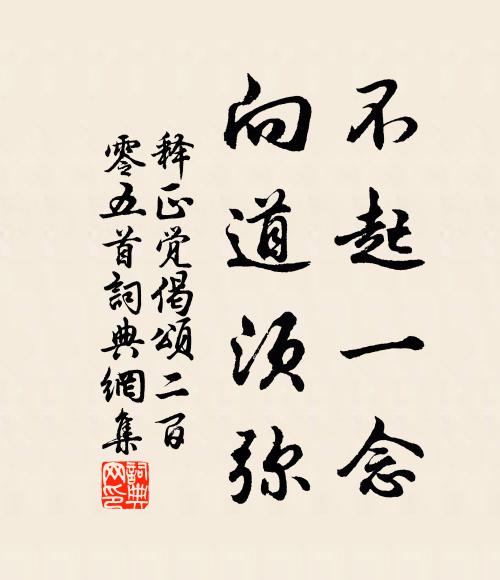 不起一念
向道须弥
释正觉偈頌二百
零五首詞典網集
詞典
网印